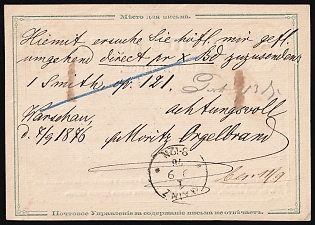 Мѣсто для письма.
Hiemit ersuche Sie höfl. mir gefl.
umgehend direct pr X Bd zuzusenden
1 Smith op. 121.
achtungsvoll
Warschau,
d. 7/9 1876 Moritz Orgelbrand
Почтовое Управленіе за содержаніе письма не отвѣчаетъ.